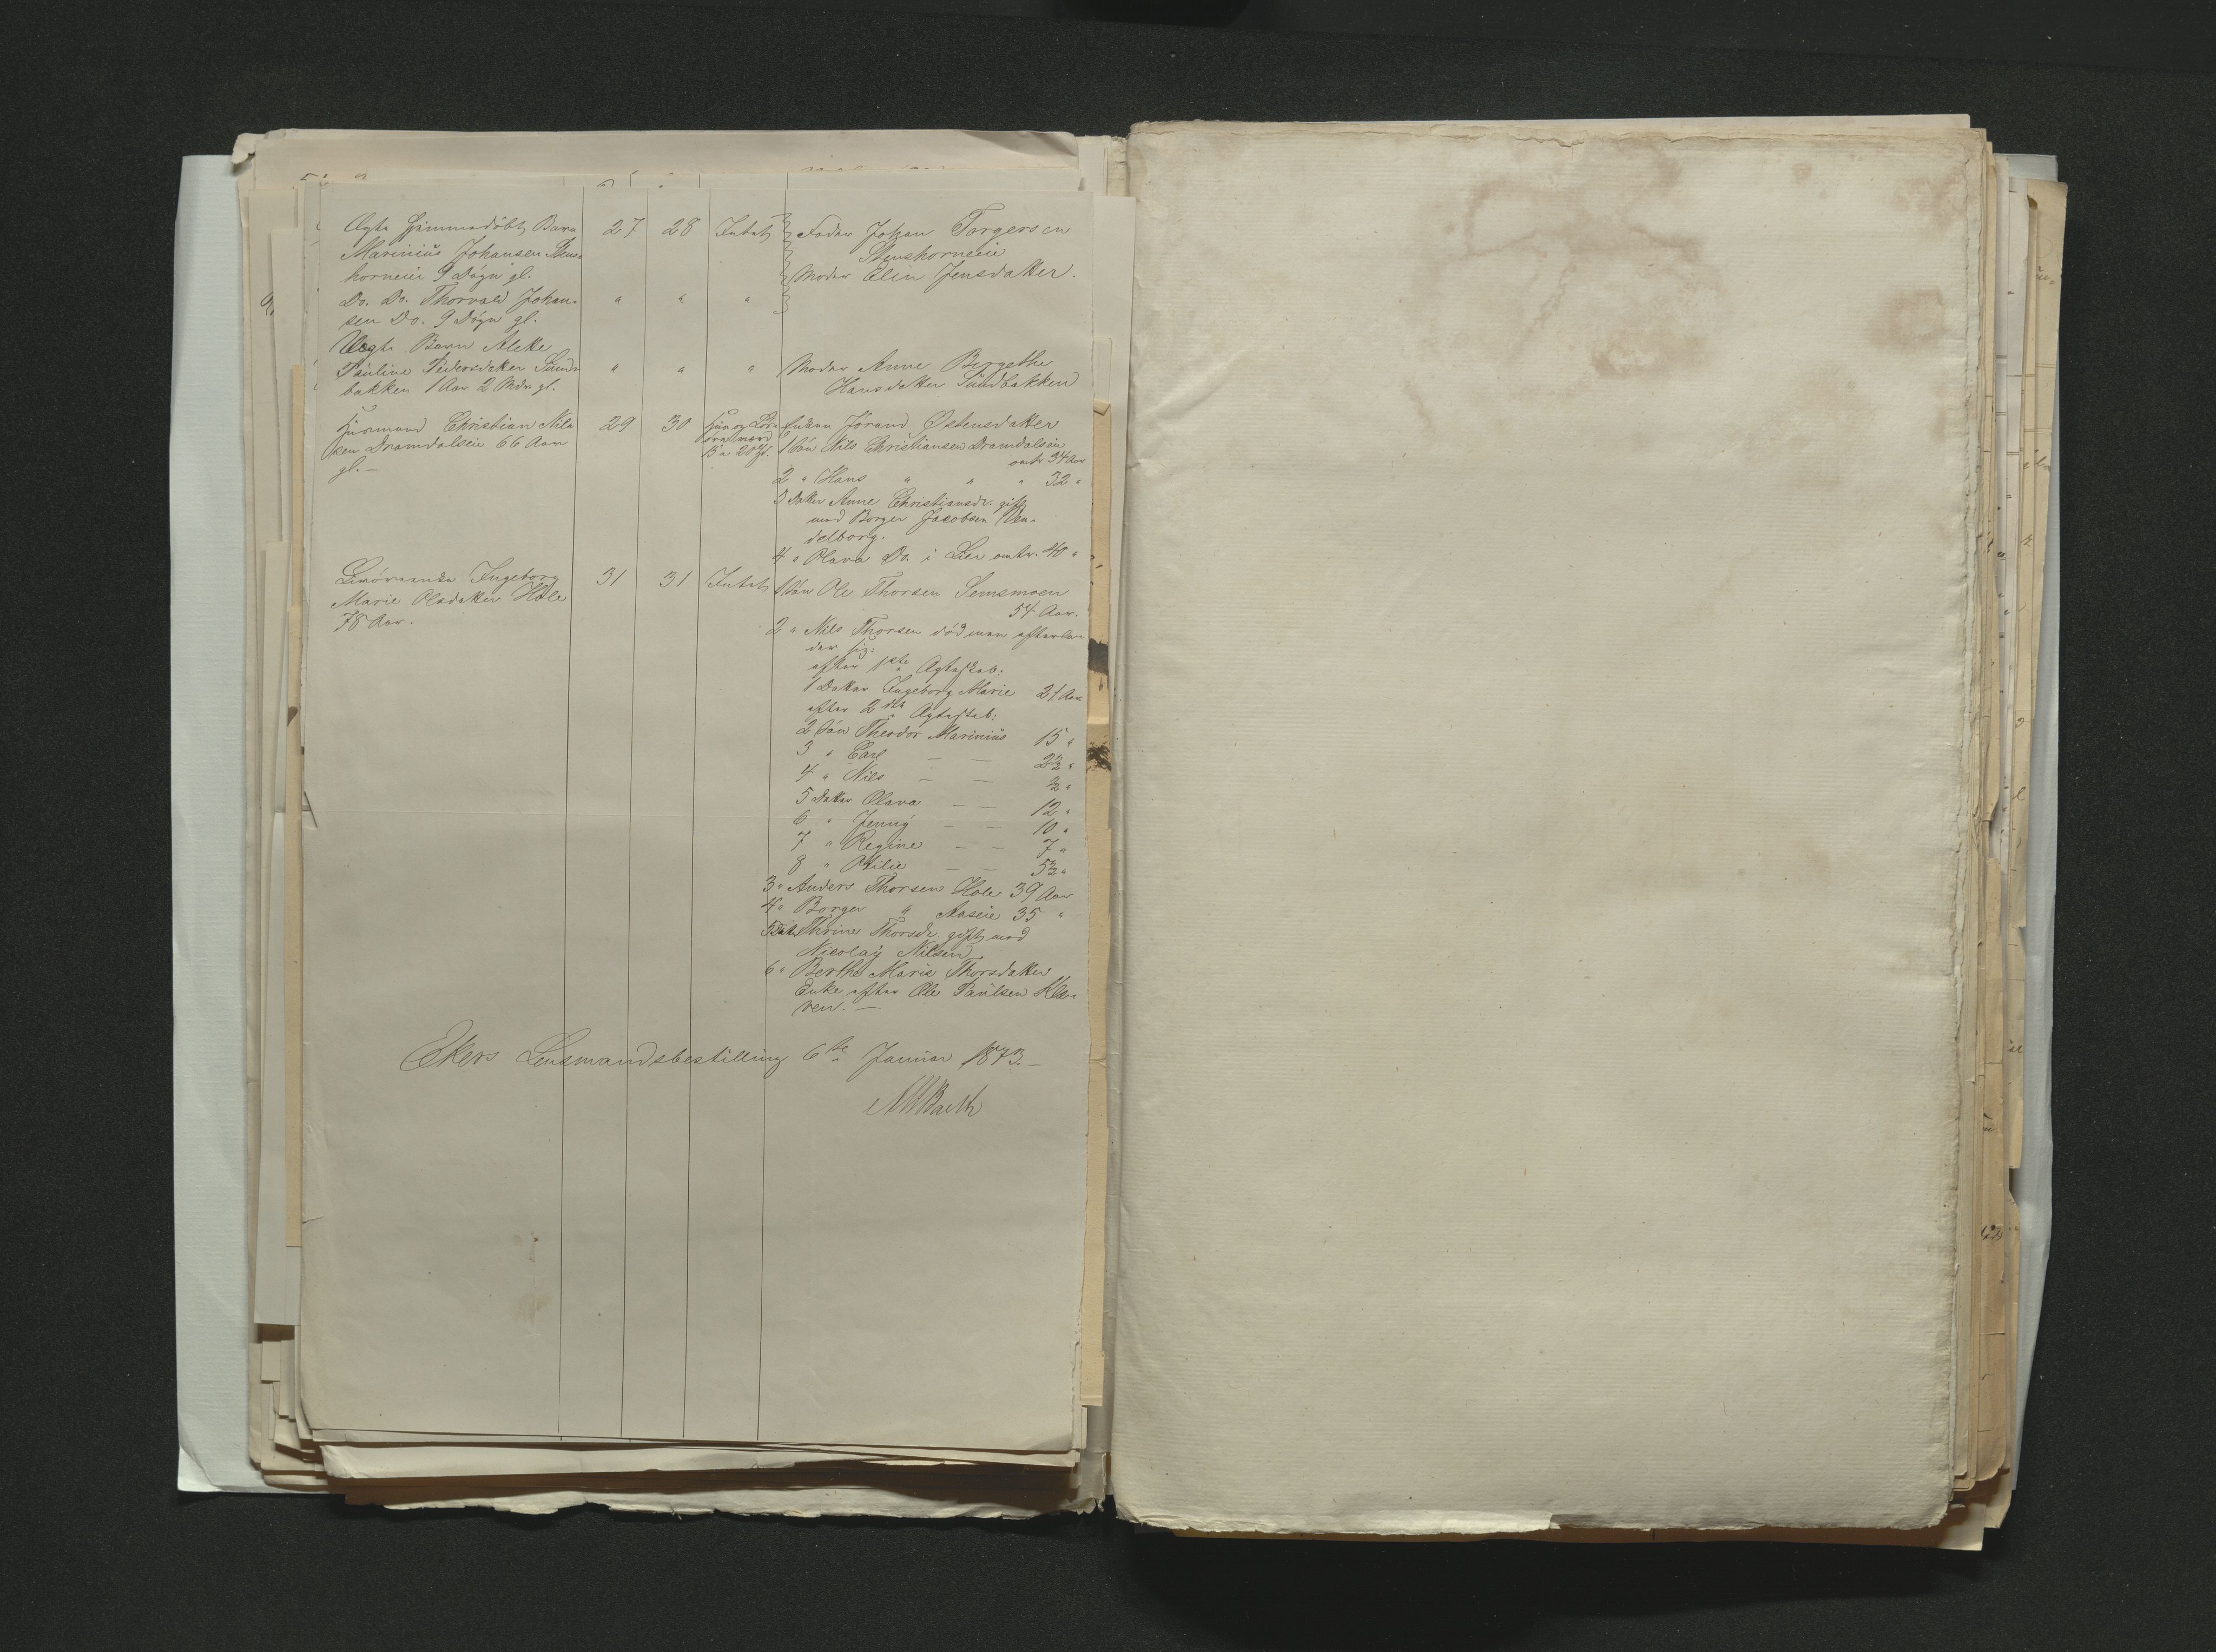 Ægte hjemmedöbt Barn 27 28 Intet Fader Johan Torgersen
Marinius Johansen Stens- Stenshorneie
horneie 9 Døgn gl. Moder Elin Jensdatter.
Do. Do. Thorvald Johan- " " "
sen Do. 9 Døgn gl.
Uægte Barn Aleke
Pauline Pedersdatter Sund- " " " Moder Anne Bergethe
bakken 1 Aar 2 Mdr. gl. Hansdatter Sundbakken
Husmand Christian Nils- 29 30 Huus og Enken Jørand Østensdatter
sen Dramdalseie 66 Aar 1 Søn Nils Christiansen Dramdalseie
gl. — omtr 34 Aar
2 " Hans " " " 32 "
3 Datter Anne Christiansdr. gift
med Borger Jacobsen
delborg.
4 " Olava Do. i Lier omtr. 40 "
Ingeborg 31 31 Intet 1 Søn Ole Thorsen Semsmoen
Marie Olsdatter Hole 54 Aar.
78 Aar.
2 " Nils Thorsen død men efterla-
der sig:
efter 1ste Ægteskab:
1 Datter Ingeborg Marie 21 Aar
efter 2det Ægteskab:
2 Søn Theodor Marinius 15 "
3 " Carl — — 2½ "
4 " Nils — — ½ "
5 Datter Olava — — 12 "
6 " Jenny — — 10 "
7 " Regine — — 7 "
8 " Otilie — — 5½ "
3 " Anders Thorsen Hole 39 Aar
4 " Borger " Aaseie 35 "
5 Dat. Thrine Thorsdr. gift med
Nicolay Nilsen
6 " Berthe Marie Thorsdatter
Enke efter Ole Paulsen Klæ-
ven. —
Ekers Lensmandsbestilling 6te Januar 1873. —